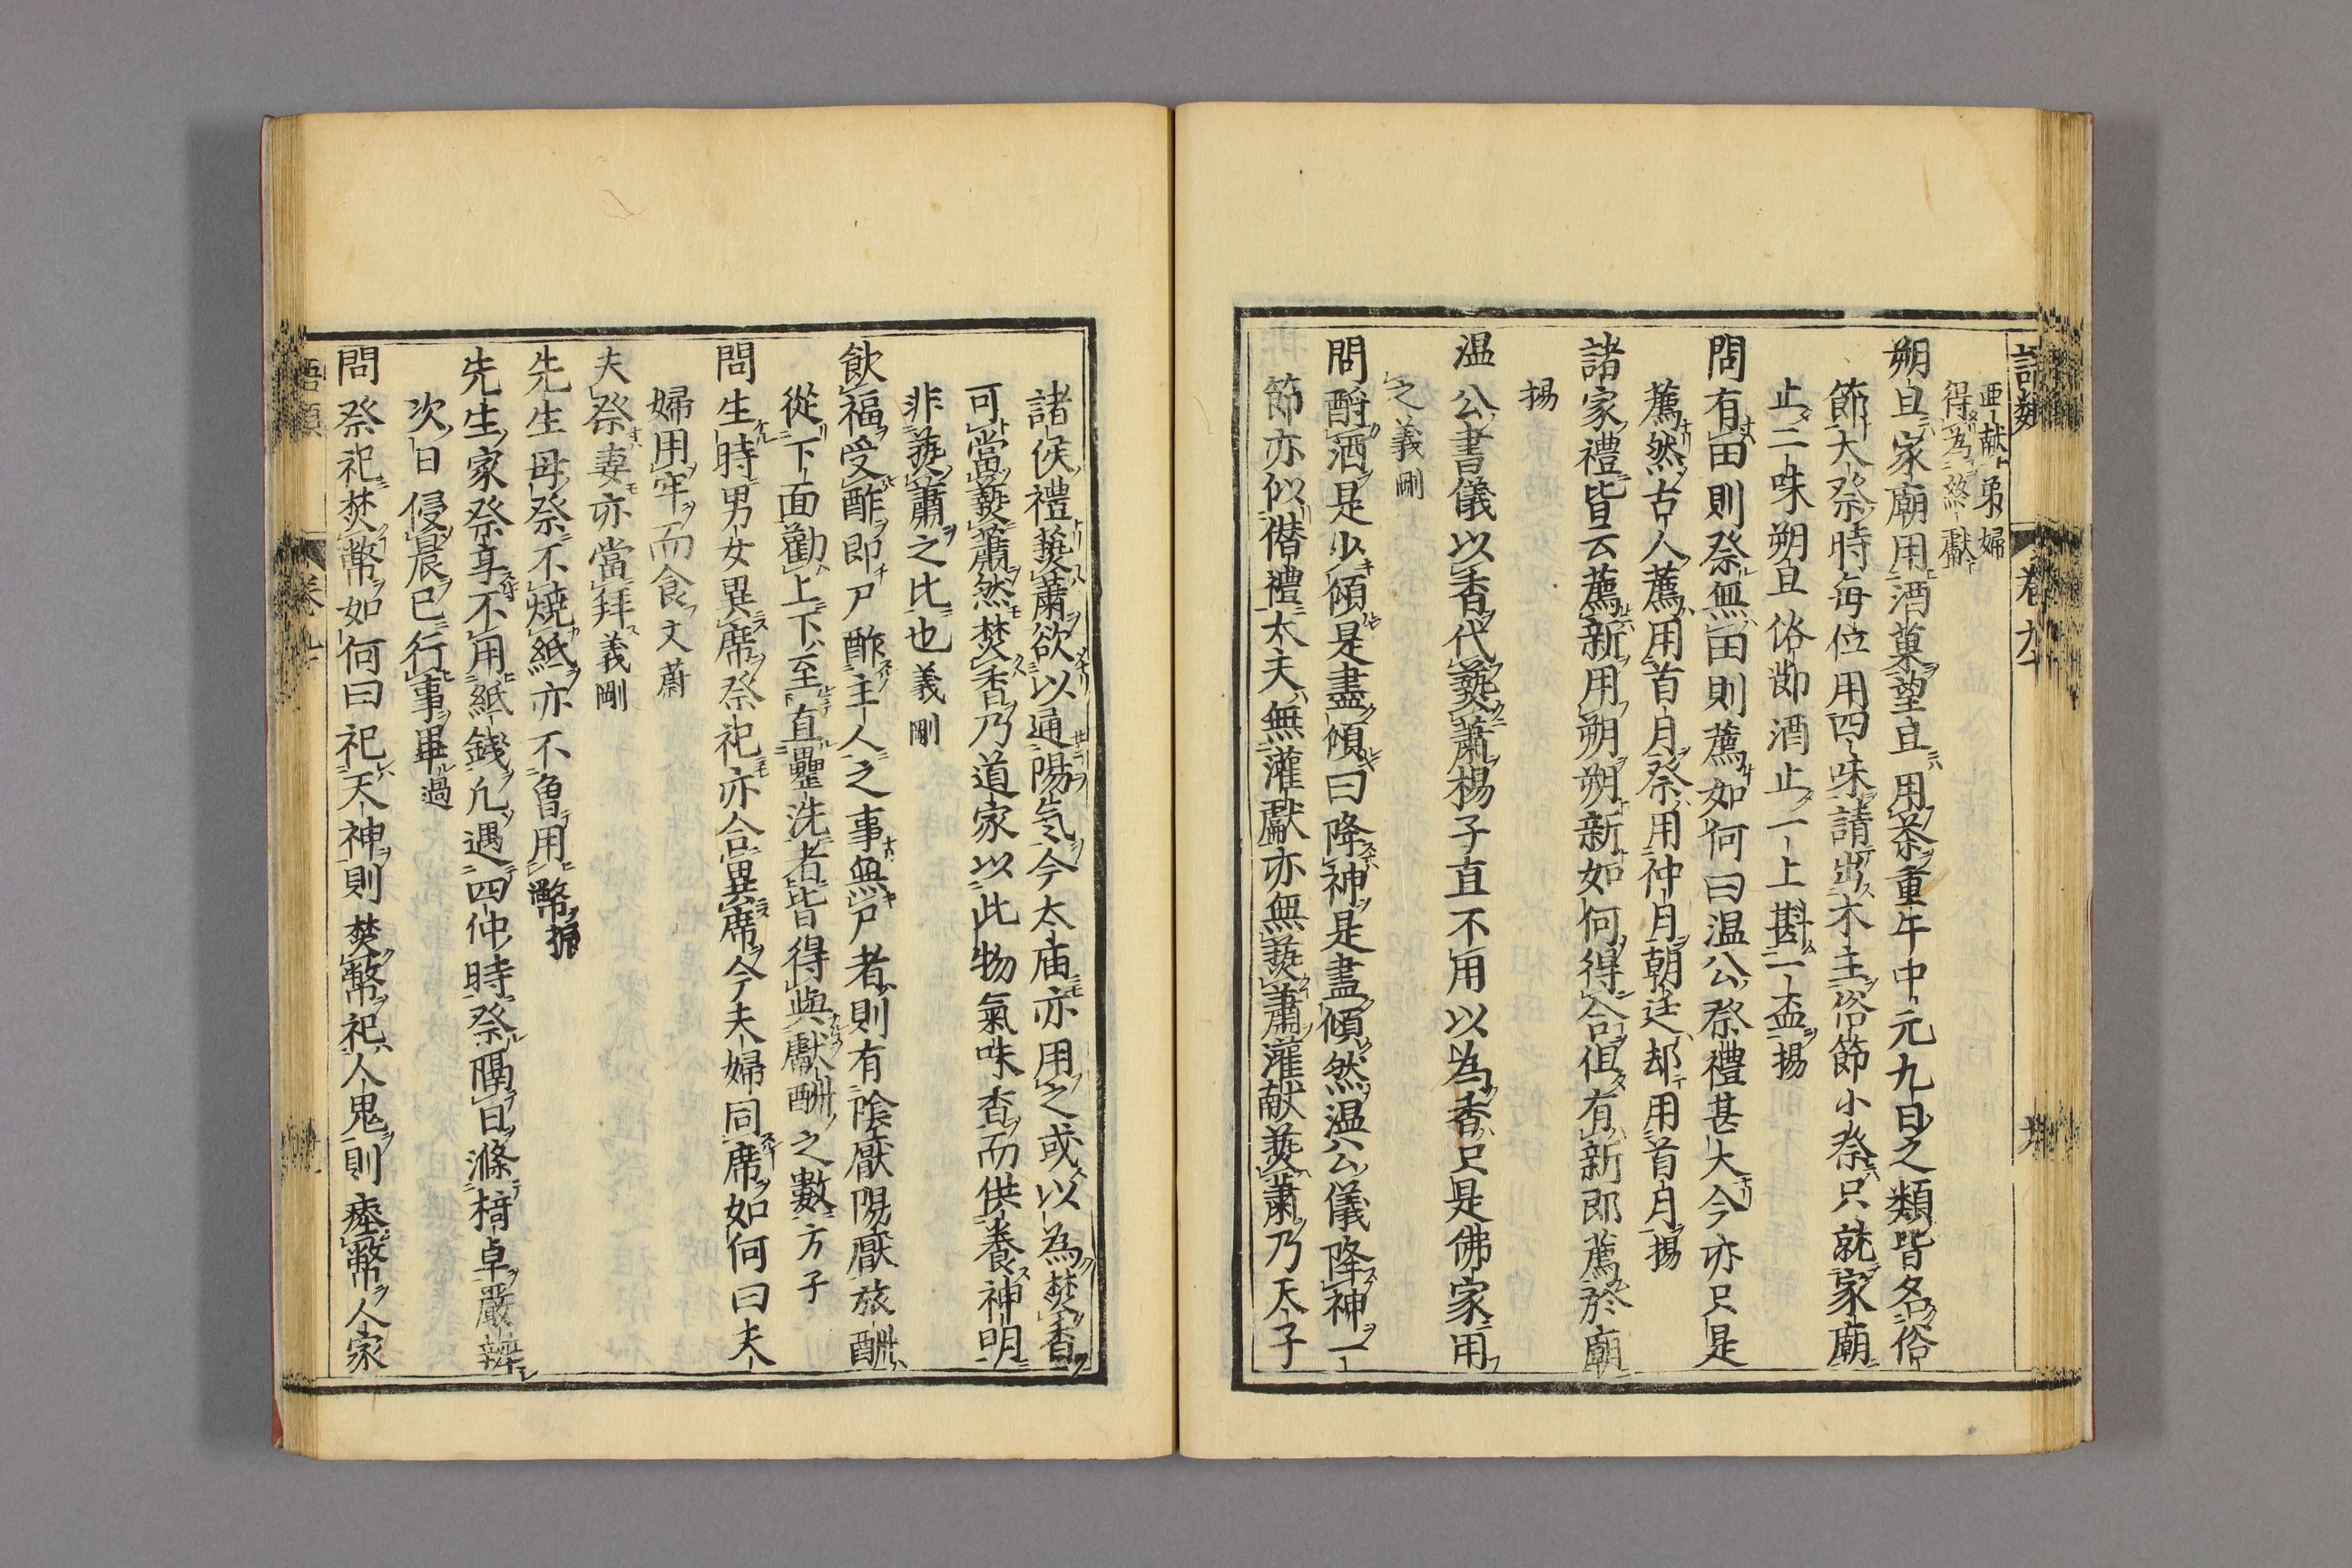 語類 卷九十
亞献弟婦
得為終獻
朔旦家廟用酒菓望旦用茶重午中元九日之類皆名俗
節大祭時每位用四味請出木主俗節小祭只就家廟
止二味朔旦俗節酒止一上斟一盃揚
問有田則祭無田則薦如何曰温公祭禮甚大今亦只是
薦然古人薦用首月祭用仲月朝廷却用首月揚
諸家禮皆云薦新用朔朔新如何得合但有新即薦於廟
揚
温公書儀以香代爇蕭楊子直不用以為香只是佛家用
之義剛
問酹酒是少傾是盡傾曰降神是盡傾然温公儀降神一
節亦似僣禮大夫無灌獻亦無爇蕭灌献爇蕭乃天子
諸侯禮爇蕭欲以通陽气今太庙亦用之或以為焚香
可當爇蕭然焚香乃道家以此物氣味香而供養神明
非爇蕭之比也義剛
飲福受酢即尸酢主人之事無尸者則有陰厭陽厭旅酬
從下面勸上下至直罍洗者皆得與獻酬之數方子
問生時男女異席祭祀亦合異席今夫婦同席如何曰夫
婦用牢而食文蔚
夫祭妻亦當拜義剛
先生母祭不燒紙亦不曾用幣振
先生家祭享不用紙錢凡遇四仲時祭隔日滌椅卓嚴辨
次日侵晨已行事畢過
問祭祀焚幣如何曰祀天神則焚幣祀人鬼則瘞幣人家
語類 卷九十